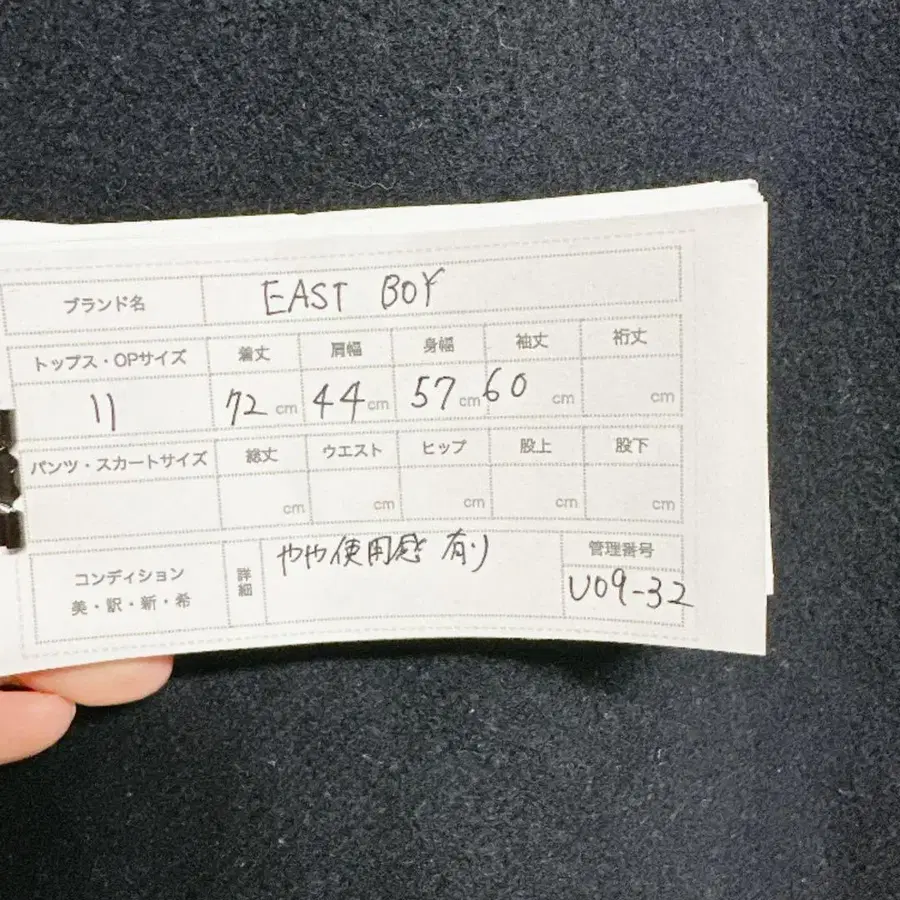 ブランド名 EAST BOY
トップス・OPサイズ 着丈 肩幅 身幅 袖丈 裄丈
11 72 cm 44 cm 57 cm 60 cm cm
パンツ・スカートサイズ 総丈 ウエスト ヒップ 股上 股下
cm cm cm cm cm
コンディション 詳細 やや使用感 有り 管理番号
美・訳・新・希 U09-32